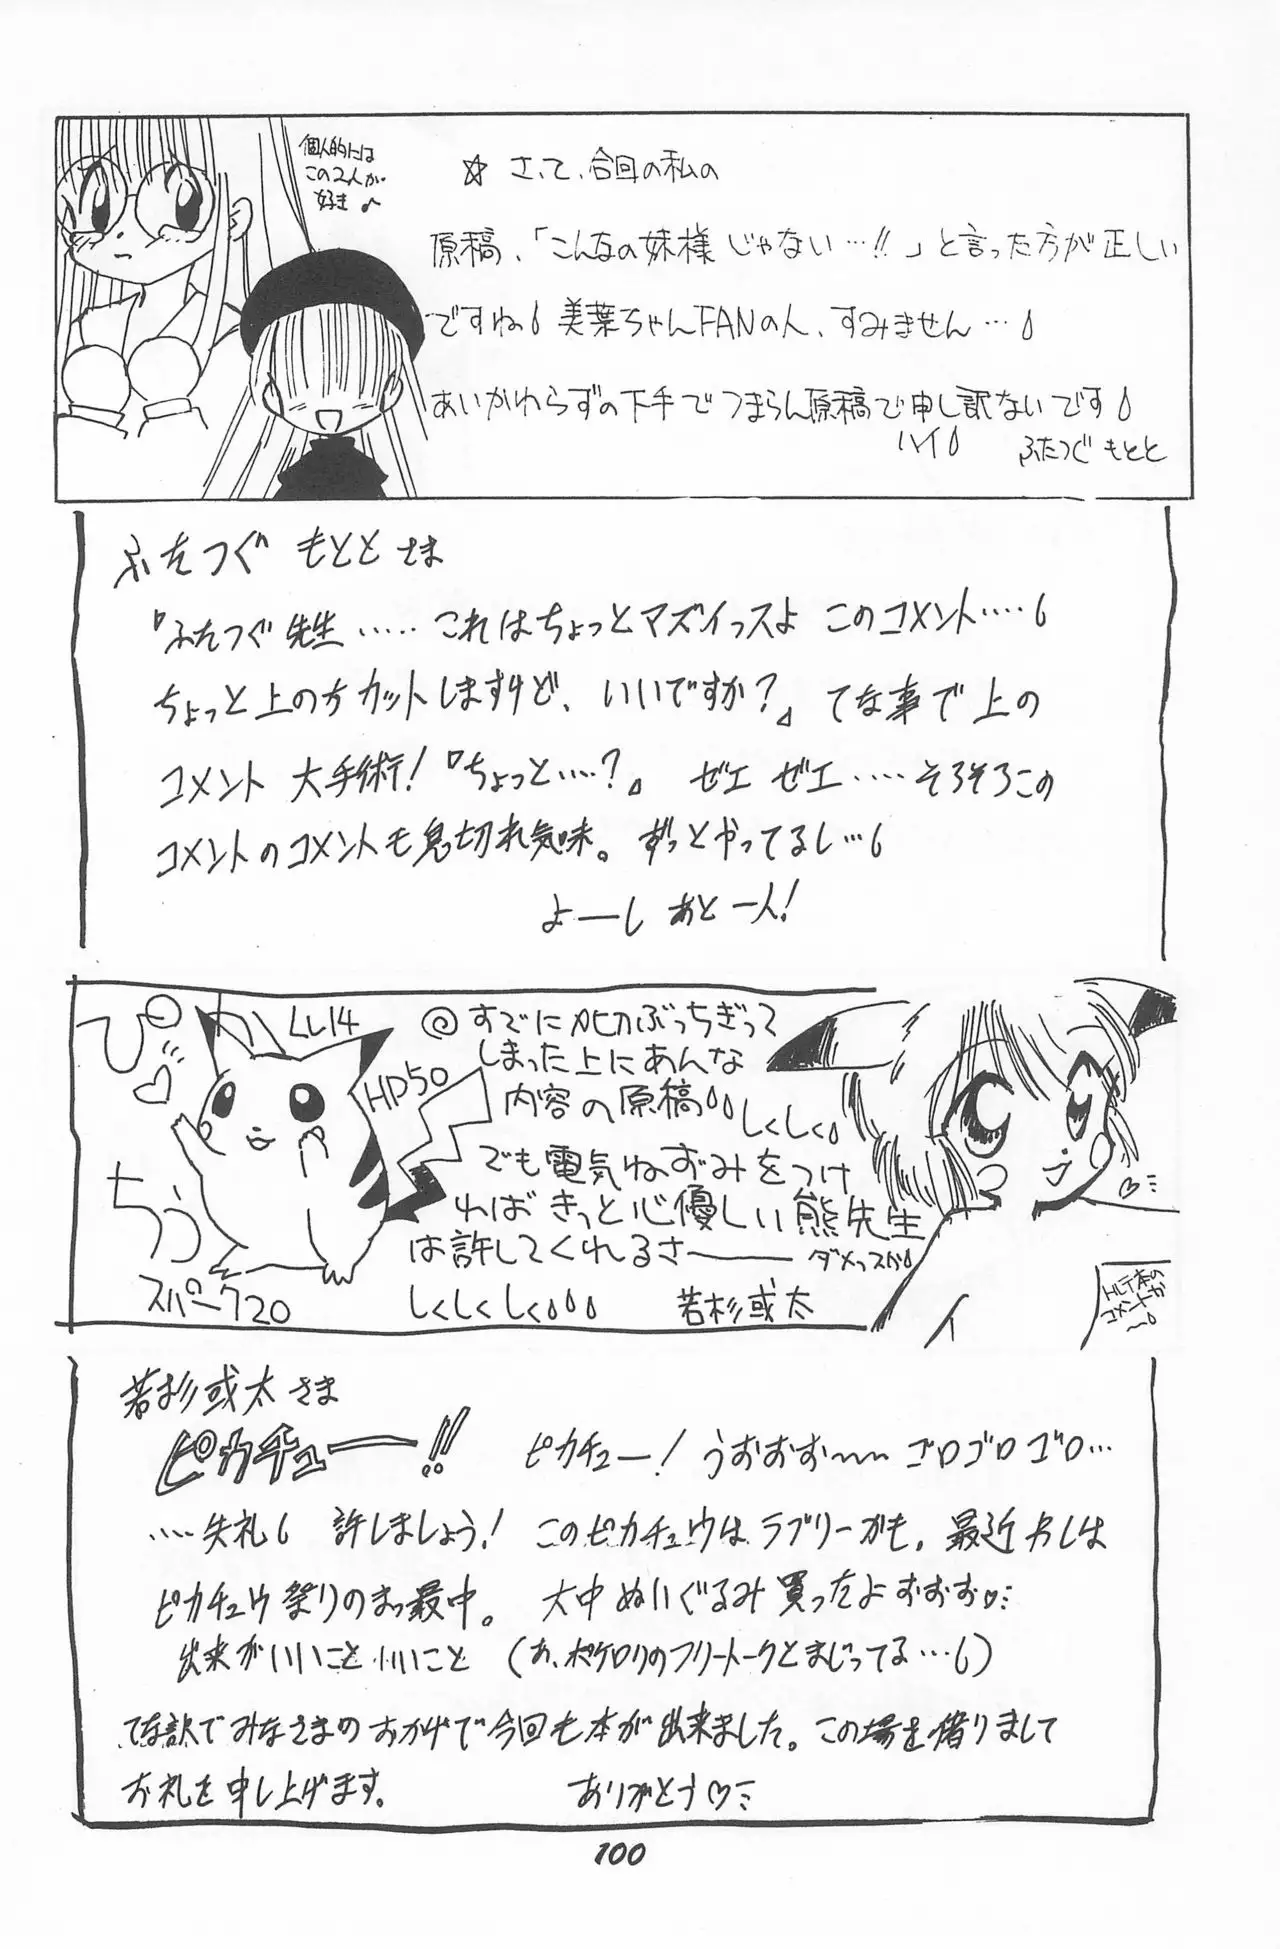 個人的には
この2人が
好き♪
☆ さて、今回の私の
原稿、「こんなの妹様じゃない…!!」と言った方が正しい
ですね 美葉ちゃんFANの人、すみません…
あいかわらずの下手でつまらん原稿で申し訳ないです
ハイ
ふたつぐ もとと
ふたつぐ もとと さま
『ふたつぐ先生…… これはちょっとマズイっスよ このコメント……
ちょっと上の方カットしますけど、いいですか?』 てな事で上の
コメント 大手術!『ちょっと……?』 ゼエ ゼエ…… そろそろこの
コメントのコメントも息切れ気味。ずっとやってるし…
よーし あと一人!
ぴか
ちう
LL14
HP50
スパーク20
◎すでに〆切ぶっちぎって
しまった上にあんな
内容の原稿
しくしく
でも電気ねずみをつけ
ればきっと心優しい熊先生
は許してくれるさ――
ダメっスか
しくしくしく
若杉或太
コメントか
若杉或太さま
ピカチュー!!
ピカチュー! うおおおお~~ ゴロゴロゴロ…
……失礼 許しましょう! このピカチュウはラブリーかも。最近わしは
ピカチュウ祭りのまっ最中。 大中ぬいぐるみ買ったよおおお♡
出来がいいこと いいこと (あ、ポケロリのフリートークとまじってる…)
てな訳でみなさまのおかげで今回も本が出来ました。この場を借りまして
お礼を申し上げます。 ありがとう♡
100